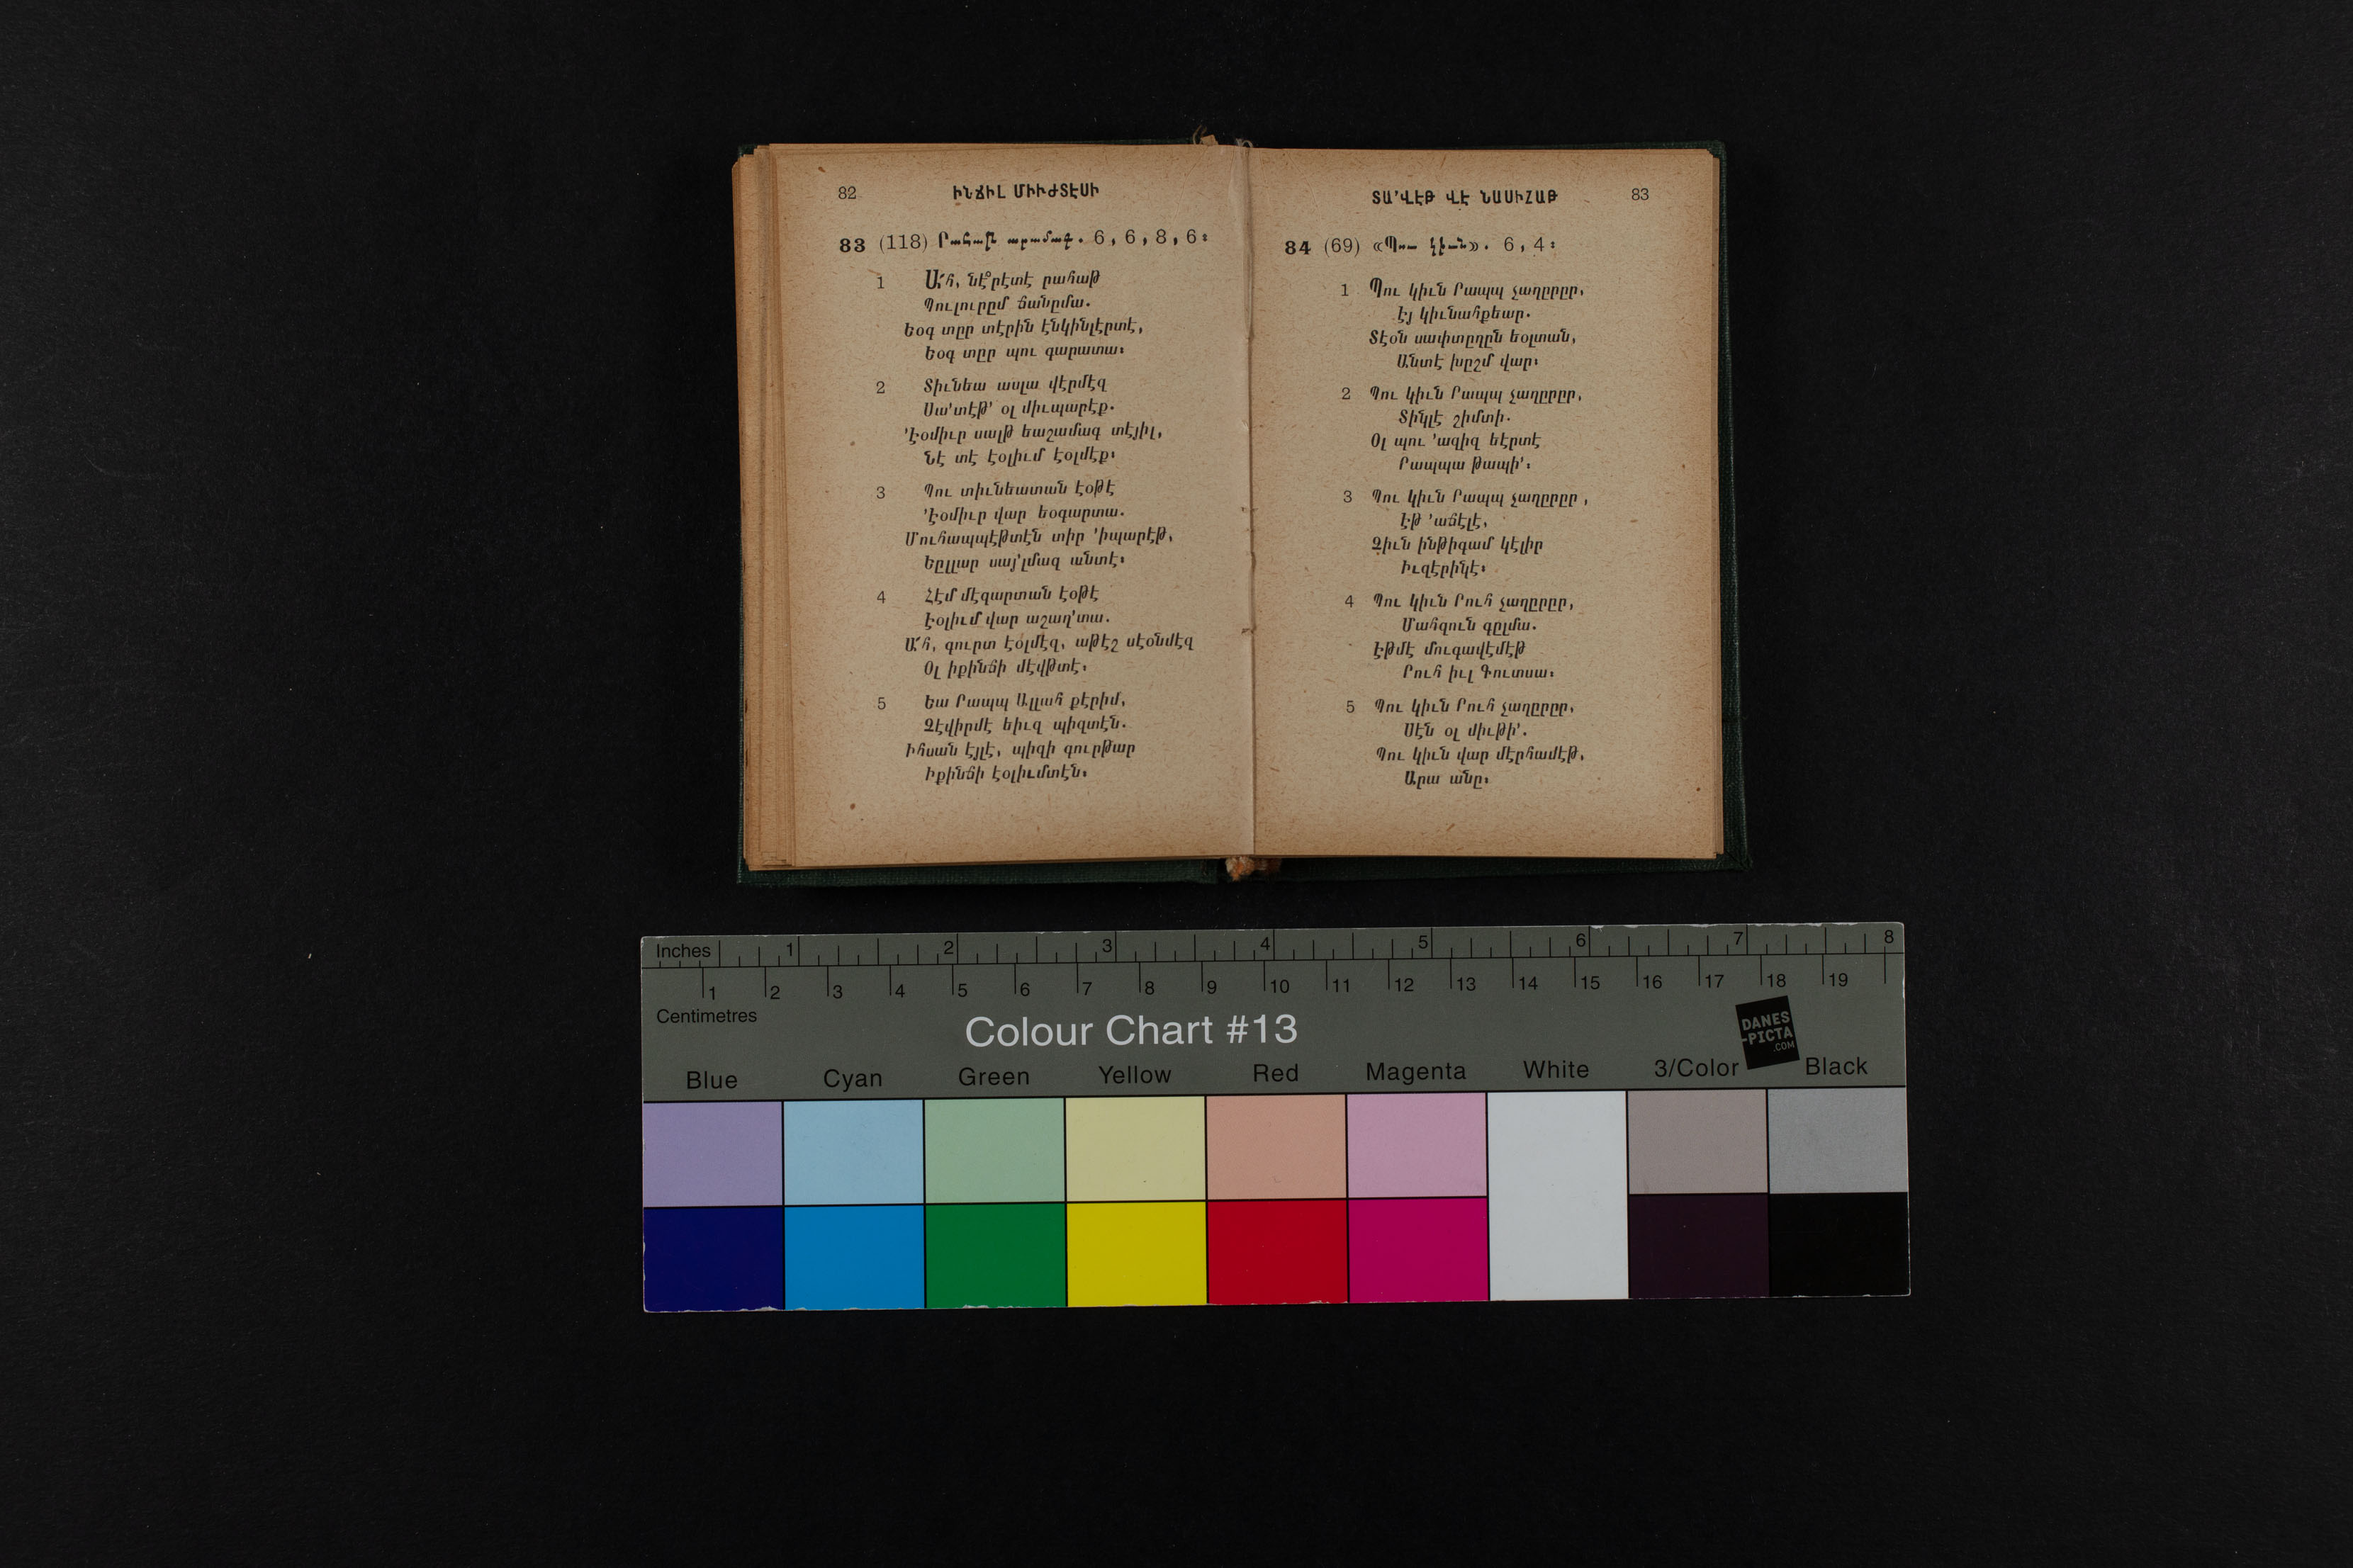 82 ԻՆՃԻԼ ՄԻՒԺՏԷՍԻ
83 (118) Րահաթ արամագ. 6, 6, 8, 6։
1 Ա՜հ, նէ՞րէտէ րահաթ
Պուլուրըմ ճանըմա.
Եօգ տըր տէրին էնկինլէրտէ,
Եօգ տըր պու գարատա։
2 Տիւնեա ասլա վէրմէզ
Սա՚տէթ՚ օլ միւպարէք.
՚Էօմիւր սալթ եաշամագ տէյիլ,
Նէ տէ էօլիւմ էօլմէք։
3 Պու տիւնեատան էօթէ
՚Էօմիւր վար եօգարտա.
Մուհապպէթտէն տիր ՚իպարէթ,
Եըլլար սայ՚լմազ անտէ։
4 Հէմ մէզարտան էօթէ
Էօլիւմ վար աշաղ՚տա.
Ա՜հ, գուրտ էօլմէզ, աթէշ սէօնմէզ
Օլ իքինճի մէվթտէ։
5 Եա Րապպ Ալլահ քէրիմ,
Չէվիրմէ եիւզ պիզտէն.
Իհսան էյլէ, պիզի գուրթար
Իքինճի էօլիւմտէն։
ՏԱ՚ՎԷԹ ՎԷ ՆԱՍԻՀԱԹ 83
84 (69) «Պու կիւն». 6, 4։
1 Պու կիւն Րապպ չաղըրըր,
Էյ կիւնահքեար.
Տէօն սափտըղըն եօլտան,
Անտէ խըշմ վար։
2 Պու կիւն Րապպ չաղըրըր,
Տինլէ շիմտի.
Օլ պու ՚ազիզ եէրտէ
Րապպա թապի՚։
3 Պու կիւն Րապպ չաղըրըր,
Էթ ՚աճէլէ,
Չիւն ինթիգամ կէլիր
Իւզէրինէ։
4 Պու կիւն Րուհ չաղըրըր,
Մահզուն գըլմա.
Էթմէ մուգավէմէթ
Րուհ իւլ Գուտսա։
5 Պու կիւն Րուհ չաղըրըր,
Սէն օլ միւթի՚.
Պու կիւն վար մէրհամէթ,
Արա անը։
Inches 1 2 3 4 5 6 7 8
1 2 3 4 5 6 7 8 9 10 11 12 13 14 15 16 17 18 19
Centimetres
Colour Chart #13
DANES
-PICTA
.COM
Blue Cyan Green Yellow Red Magenta White 3/Color Black